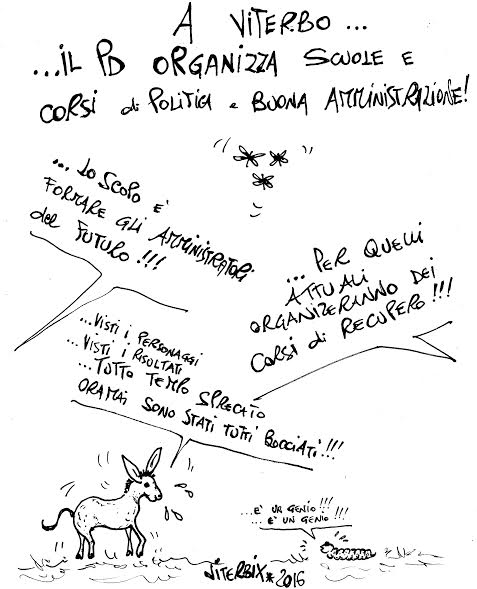 A VITERBO ...
...IL PD ORGANIZZA SCUOLE E
CORSI di POLITICA e BUONA AMMINISTRAZIONE!
... LO SCOPO E'
FORMARE GLI AMMINISTRATORI
del FUTURO!!!
... PER QUELLI
ATTUALI
ORGANIZERANNO DEI
CORSI di RECUPERO!!!
...VISTI I PERSONAGGI
...VISTI I RISULTATI
...TUTTO TEMPO SPRECATO
ORAMAI SONO STATI TUTTI BOCCIATI!!!
...E' UN GENIO!!!
...E' UN GENIO!!
VITERBIX*2016